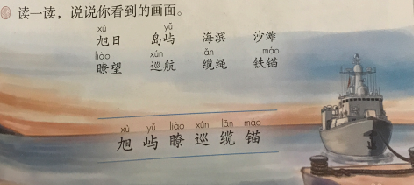 读一读，说说你看到的画面。
xù yǔ
旭日 岛屿 海滨 沙滩
liào xún lǎn máo
瞭望 巡航 缆绳 铁锚
xù yǔ liào xún lǎn máo
旭 屿 瞭 巡 缆 锚